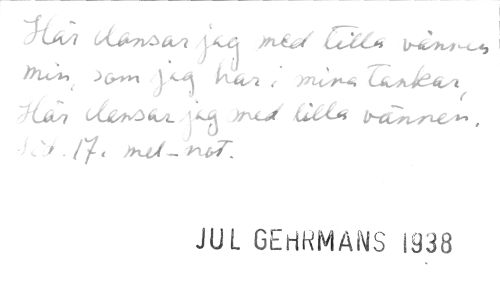 Här dansar jag med lilla vännen
min, som jag har i mina tankar,
Här dansar jag med lilla vännen.
17. mel-not.
JUL GEHRMANS 1938